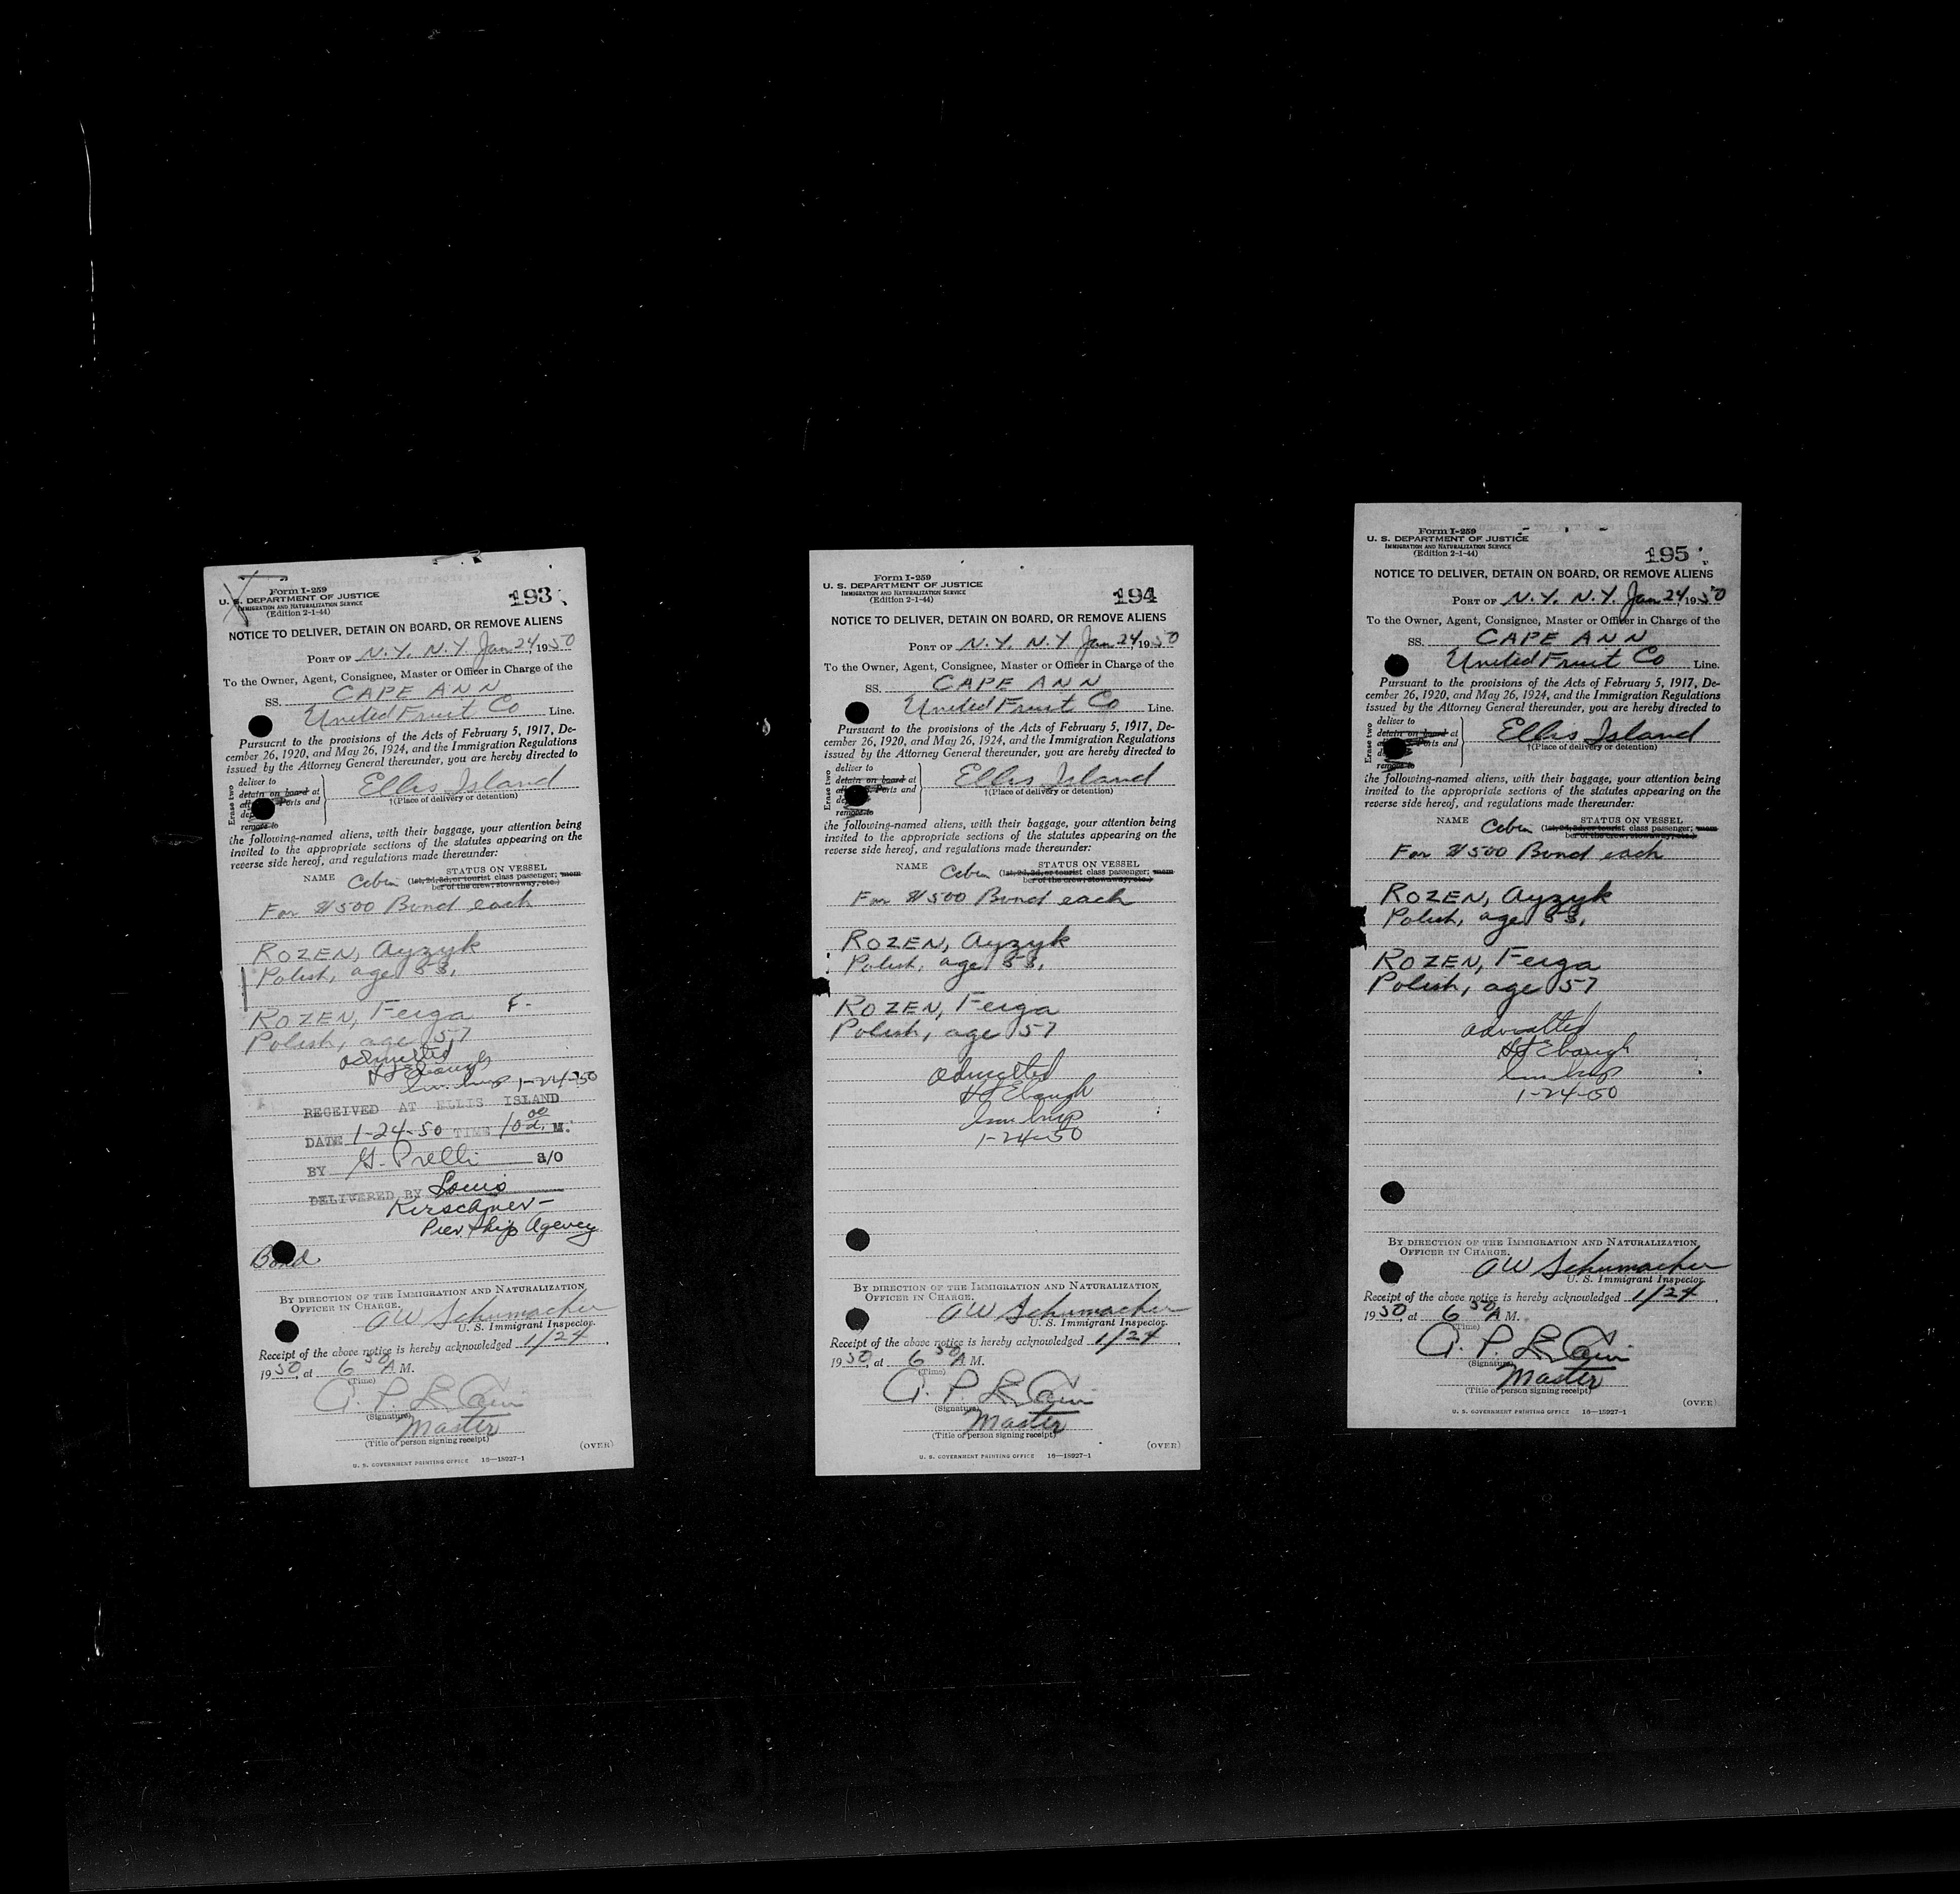 Form I-259
U. S. DEPARTMENT OF JUSTICE
IMMIGRATION AND NATURALIZATION SERVICE
(Edition 2-1-44)
193
NOTICE TO DELIVER, DETAIN ON BOARD, OR REMOVE ALIENS
PORT OF N.Y. N.Y. Jan 24, 1950
To the Owner, Agent, Consignee, Master or Officer in Charge of the
SS. CAPE ANN
United Fruit Co Line.
Pursuant to the provisions of the Acts of February 5, 1917, De-
cember 26, 1920, and May 26, 1924, and the Immigration Regulations
issued by the Attorney General thereunder, you are hereby directed to
Erase two
deliver to
detain on board at
Ports and
remove to
Ellis Island
†(Place of delivery or detention)
the following-named aliens, with their baggage, your attention being
invited to the appropriate sections of the statutes appearing on the
reverse side hereof, and regulations made thereunder:
NAME Cabin STATUS ON VESSEL
(1st, 2d, 3d, or tourist class passenger; mem-
ber of the crew; stowaway, etc.)
For $500 Bond each
ROZEN, Ayzyk
Polish, age 53,
ROZEN, Feiga F-
Polish, age 57
admitted
Ebaugh
Imm Insp 1-24-50
RECEIVED AT ELLIS ISLAND
DATE 1-24-50 TIME 10 00 a. M.
BY G. Prelli S/O
DELIVERED BY Louis
Kirschner-
Pier Ship Agency
Bond
BY DIRECTION OF THE IMMIGRATION AND NATURALIZATION
OFFICER IN CHARGE.
AW Schumacher
U. S. Immigrant Inspector.
Receipt of the above notice is hereby acknowledged 1/24,
1950, at 6 50 A M.
(Time)
(Signature)
Master
(Title of person signing receipt)
(OVER)
U. S. GOVERNMENT PRINTING OFFICE 16—18927-1
Form I-259
U. S. DEPARTMENT OF JUSTICE
IMMIGRATION AND NATURALIZATION SERVICE
(Edition 2-1-44)
194
NOTICE TO DELIVER, DETAIN ON BOARD, OR REMOVE ALIENS
PORT OF N.Y. N.Y Jan 24, 1950
To the Owner, Agent, Consignee, Master or Officer in Charge of the
SS. CAPE ANN
United Fruit Co Line.
Pursuant to the provisions of the Acts of February 5, 1917, De-
cember 26, 1920, and May 26, 1924, and the Immigration Regulations
issued by the Attorney General thereunder, you are hereby directed to
Erase two
deliver to
detain on board at
Ports and
remove to
Ellis Island
†(Place of delivery or detention)
the following-named aliens, with their baggage, your attention being
invited to the appropriate sections of the statutes appearing on the
reverse side hereof, and regulations made thereunder:
NAME Cabin STATUS ON VESSEL
(1st, 2d, 3d, or tourist class passenger; mem-
ber of the crew; stowaway, etc.)
For $500 Bond each
ROZEN, Ayzyk
Polish, age 53,
ROZEN, Feiga
Polish, age 57
admitted
Ebaugh
Imm Insp
1-24-50
BY DIRECTION OF THE IMMIGRATION AND NATURALIZATION
OFFICER IN CHARGE.
AW Schumacher
U. S. Immigrant Inspector.
Receipt of the above notice is hereby acknowledged 1/24,
1950, at 6 50 A M.
(Time)
(Signature)
Master
(Title of person signing receipt)
(OVER)
U. S. GOVERNMENT PRINTING OFFICE 16—18927-1
Form I-259
U. S. DEPARTMENT OF JUSTICE
IMMIGRATION AND NATURALIZATION SERVICE
(Edition 2-1-44)
195
NOTICE TO DELIVER, DETAIN ON BOARD, OR REMOVE ALIENS
PORT OF N.Y. N.Y. Jan 24, 1950
To the Owner, Agent, Consignee, Master or Officer in Charge of the
SS. CAPE ANN
United Fruit Co Line.
Pursuant to the provisions of the Acts of February 5, 1917, De-
cember 26, 1920, and May 26, 1924, and the Immigration Regulations
issued by the Attorney General thereunder, you are hereby directed to
Erase two
deliver to
detain on board at
Ports and
remove to
Ellis Island
†(Place of delivery or detention)
the following-named aliens, with their baggage, your attention being
invited to the appropriate sections of the statutes appearing on the
reverse side hereof, and regulations made thereunder:
NAME Cabin STATUS ON VESSEL
(1st, 2d, 3d, or tourist class passenger; mem-
ber of the crew; stowaway, etc.)
For $500 Bond each
ROZEN, Ayzyk
Polish, age 53,
ROZEN, Feiga
Polish, age 57
admitted
Ebaugh
Imm Insp
1-24-50
BY DIRECTION OF THE IMMIGRATION AND NATURALIZATION
OFFICER IN CHARGE.
AW Schumacher
U. S. Immigrant Inspector.
Receipt of the above notice is hereby acknowledged 1/24,
1950, at 6 50 A M.
(Time)
(Signature)
Master
(Title of person signing receipt)
(OVER)
U. S. GOVERNMENT PRINTING OFFICE 16—18927-1